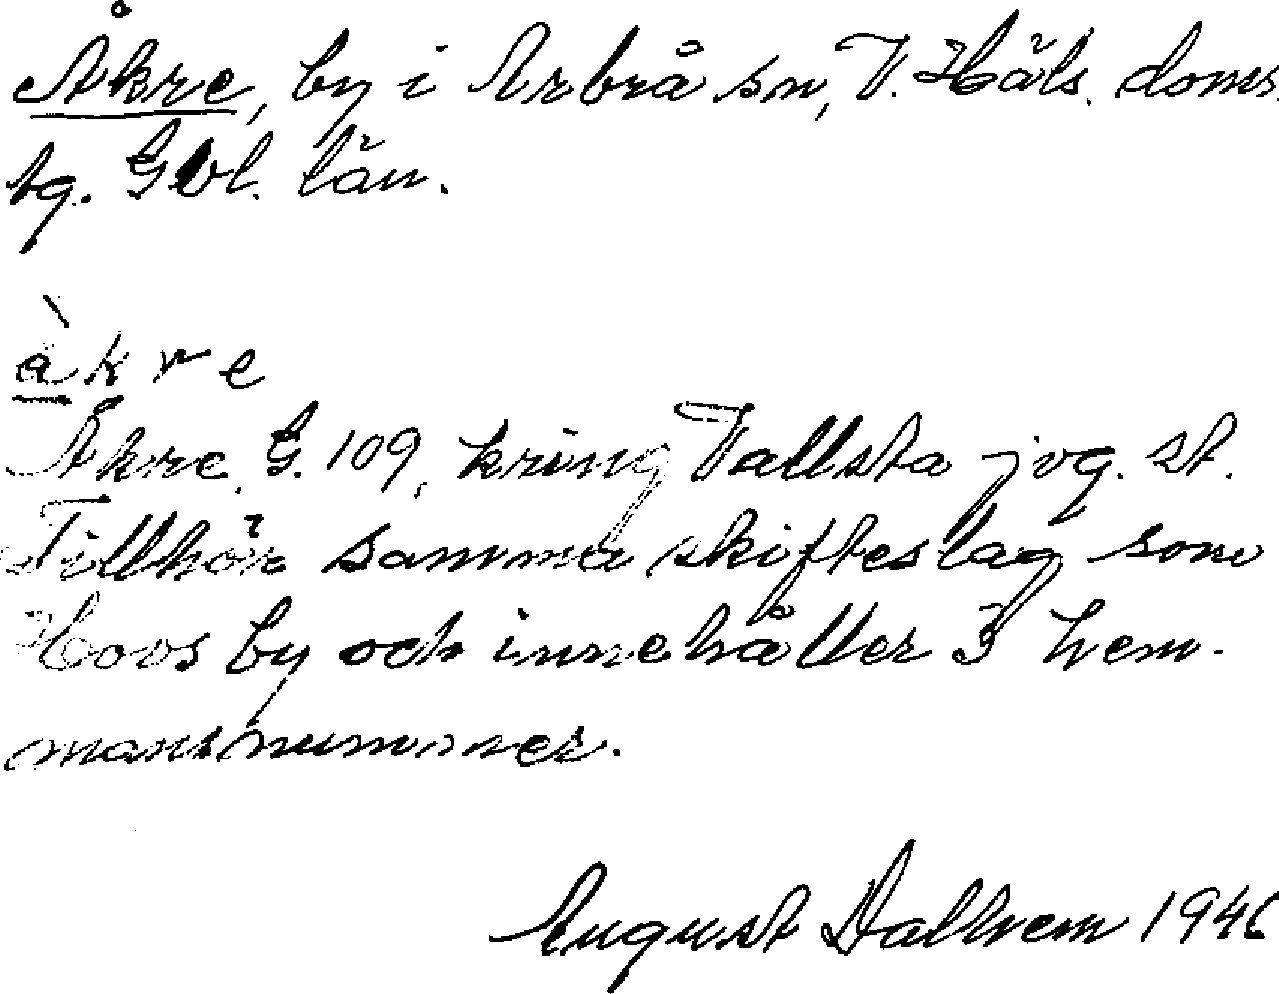 Åkre, by i Arbrå sn, V. Häls. doms.
tg. Gvl. län.
å̀kre
Åkre G. 109, kring Vallsta jvg. st.
Tillhör samma skifteslag som
Hovs by och innehåller 3 hem-
mansnummer.
August Dalhem 1946